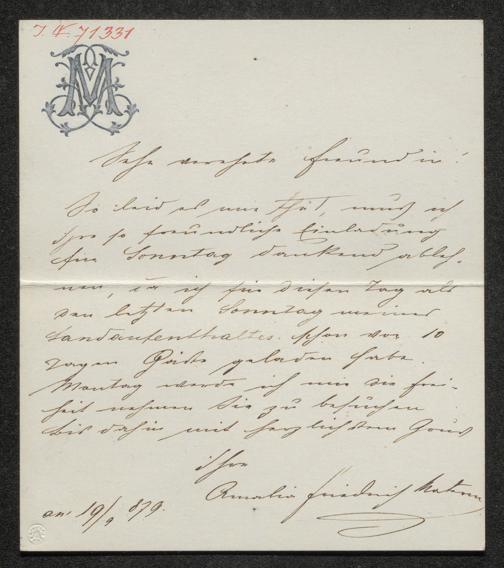 I. N. 71331
M
Sehr verehrte Freundin!
So leid es mir thut, muß ich
Ihre so freundliche Einladung
für Sonntag dankend ableh-
nen, da ich für diesen Tag als
den letzten Sonntag meines
Landaufenthaltes schon vor 10
Tagen Gäste geladen habe.
Montag werde ich mir die Frei-
heit nehmen Sie zu besuchen
bis dahin mit herzlichstem Gruß
Ihre
Amalia Friedrich Materna
am 19/9 879.